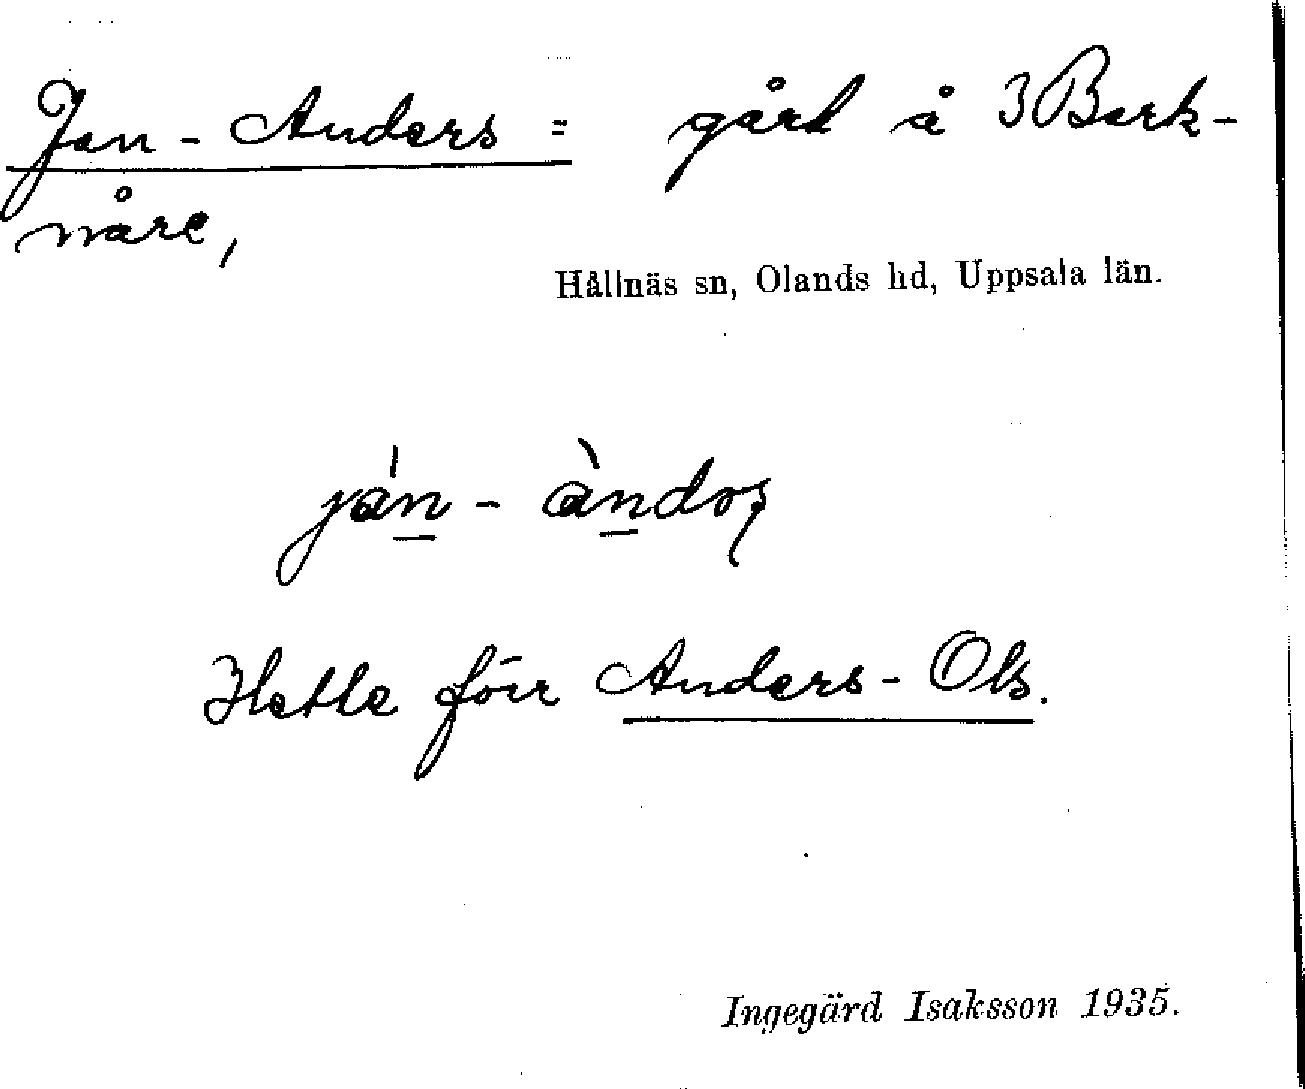 Jan-Anders= gård å 3 Berk-
våre,
Hållnäs sn, Olands hd, Uppsala län.
Hette förr Anders-Ols.
Ingegärd Isaksson 1935.